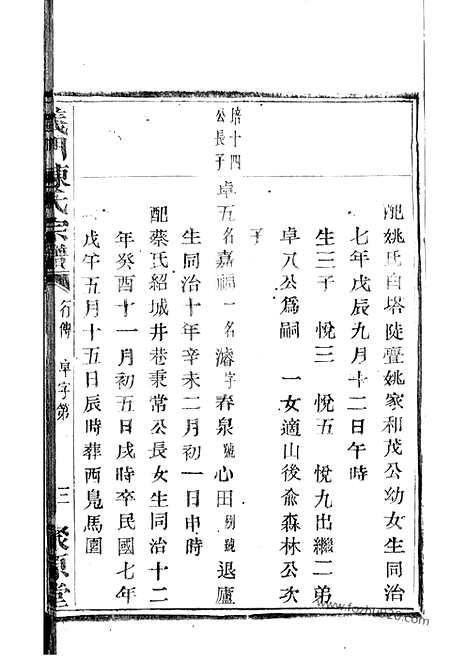 配姚氏白塔陡亹姚家和茂公幼女生同治
七年戊辰九月十二日午時
生三子 悅三 悅五 悅九出繼二弟
卓八公爲嗣 一女適山後俞森林公次
子
培十四
公長子
卓五名嘉福一名濬字春泉號心田別號退廬
生同治十年辛未二月初一日申時
配蔡氏紹城井巷秉常公長女生同治十二
年癸酉十一月初五日戌時卒民國七年
戊午五月十五日辰時葬西鳧馬園
義門陳氏宗譜
行傳 卓字第
三
聚原堂
www.fozhuo20.com